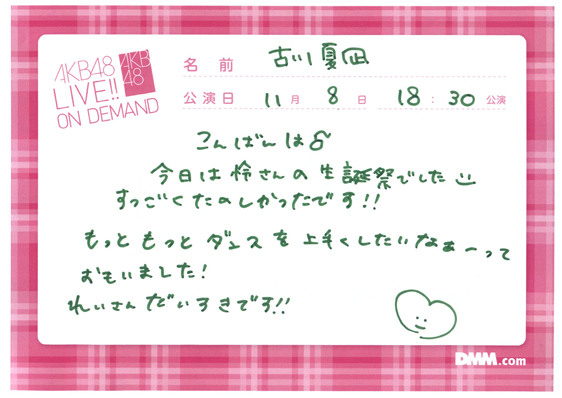 AKB48
LIVE!!
ON DEMAND
AKB
48
名前 古川夏凪
公演日 11月 8日 18:30公演
こんばんは
今日は怜さんの生誕祭でした
すっごくたのしかったです!!
もっともっとダンスを上手くしたいなぁーって
おもいました!
れいさんだいすきです!!
DMM.com